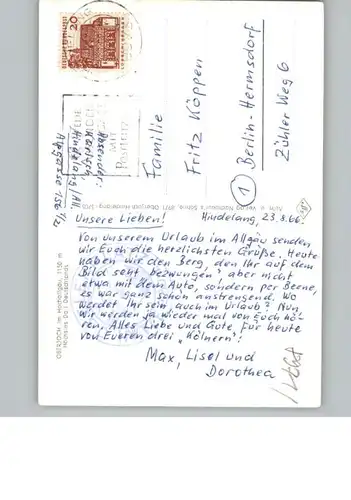 20
Absender:
Karisch
Hindelang/All.
Familie
Fritz Köppen
1 Berlin-Hermsdorf
Zühler Weg 6
OBERJOCH im Hochallgäu, 1150 m
Unsere Lieben! Hindelang, 23.8.66.
Von unserem Urlaub im Allgäu senden
wir Euch die herzlichsten Grüße. Heute
haben wir den Berg, den Ihr auf dem
Bild seht „bezwungen", aber nicht
etwa mit dem Auto, sondern per Beene,
es war ganz schön anstrengend. Wo
werdet Ihr sein, auch im Urlaub? Nun,
wir werden ja wieder mal von Euch hö-
ren. Alles Liebe und Gute für heute
von Eueren drei „Kölnern":
Max, Lisel und
Dorothea